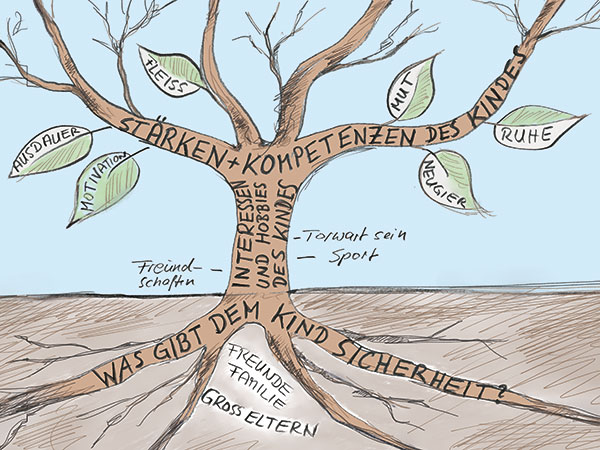 FLEISS
MUT
STÄRKEN + KOMPETENZEN DES KINDES
AUSDAUER
RUHE
MOTIVATION
NEUGIER
INTERESSEN
UND HOBBIES
DES KINDES
- Torwart sein
- Sport
Freund-
schaftn
WAS GIBT DEM KIND SICHERHEIT?
FREUNDE
FAMILIE
GROSSELTERN